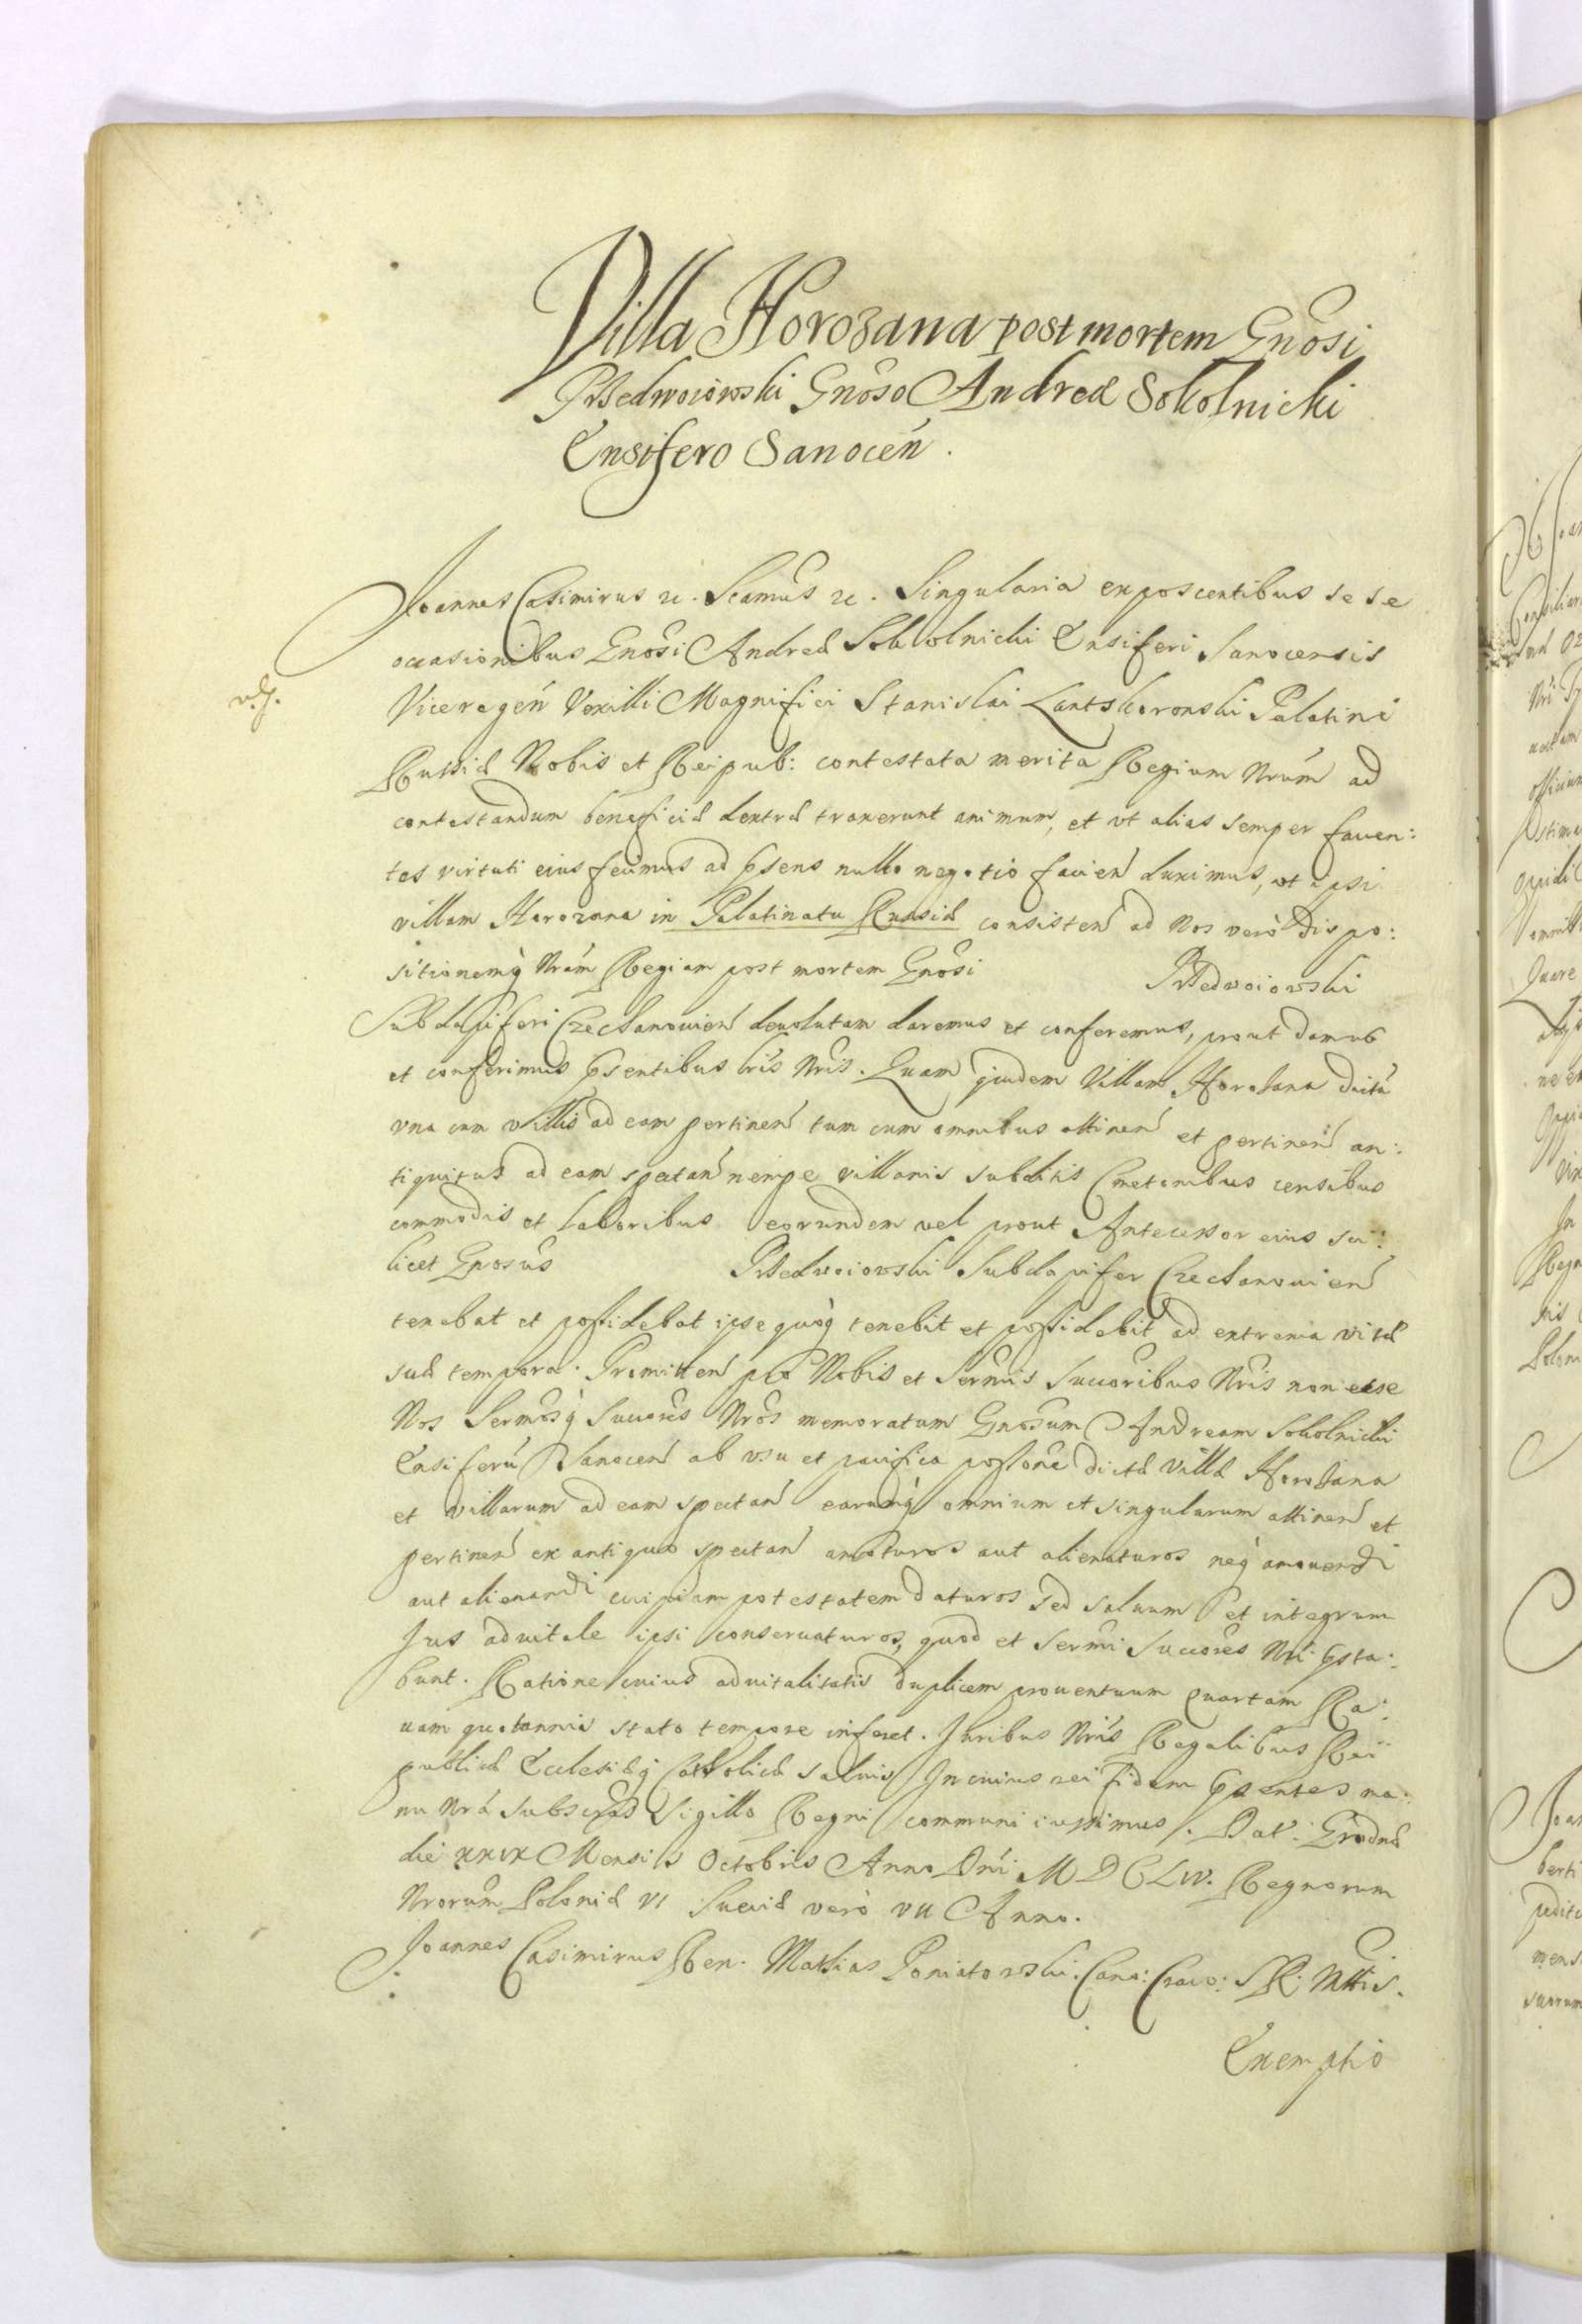 Villa Horozana post mortem Gnosi
Przedwoiowski Gnoso Andreæ Sokolnicki
Ensifero Sanocen.
Joannes Casimirus etc. Scamus etc. Singularia exposcentibus sese
occasionibus Gnosi Andreæ Sokolnicki Ensiferi Sanocensis
v.s.
Viceregen Vexilli Magnifici Stanislai Lantskoronski Palatini
Russiæ Nobis et Reipub: contestata merita Regium Nrum ad
contestandum beneficiæ dextræ traxerunt animum, et vt alias semper fauen:
tes virtuti eius fecimus ad pñsens nullo negotio facien duximus, vt ipsi
villam Horozana in Palatinatu Russiæ consisten ad Nos verò dispo:
sitionemq Nram Regiam post mortem Gnosi Przedwoiowski
Subdapiferi Czechanouien deuolutam daremus et conferemus, prout damus
et conferimus pñsentibus lris Nris. Quam quidem Villam Horozana dictã
vna cum villis ad eam pertinen tum cum omnibus attinen et pertinen an:
tiquitus ad eam spectan nempe villanis subditis Cmetonibus censibus
commodis et laboribus eorundem vel prout Antecessor eius sci:
licet Gnosus Przedwoiowski Subdapifer Czechanouien
tenebat et possidebat ipse quoq tenebit et possidebit ad extrema vitæ
suæ tempora. Promitten pro Nobis et Sermis Succoribus Nris non esse
Nos Sermosq Succores Nros memoratum Gnosum Andream Sokolnicki
Ensiferũ Sanocen ab vsu et pacifica possone dictæ villæ Horozana
et villarum ad eam spectan earumq omnium et singularum attinen et
pertinen ex antiquo spectan amoturos aut alienaturos neq amouendi
aut alienandi cuipiam potestatem daturos sed saluum et integrum
Jus aduitale ipsi conseruaturos, quod et Sermi Succores Nri pñsta:
bunt. Ratione cuius aduitalitatis duplicem prouentuum quartam Ra:
uam quotannis stato tempore inferet. Juribus Nris Regalibus Rei
publicæ Ecclesiæq Catholicæ saluis In cuius rei fidem pñsentes ma:
nu Nra subscras Sigillo Regni communi iussimus. Dat: Grodnæ
die XXIX Mensis Octobris Anno Dni MDCLIV. Regnorum
Nrorum Poloniæ VI Sueciæ verò VII Anno.
Joannes Casimirus Rex. Mathias Poniatowski. Cano: Craco: S R: Mttis.
Exemptio